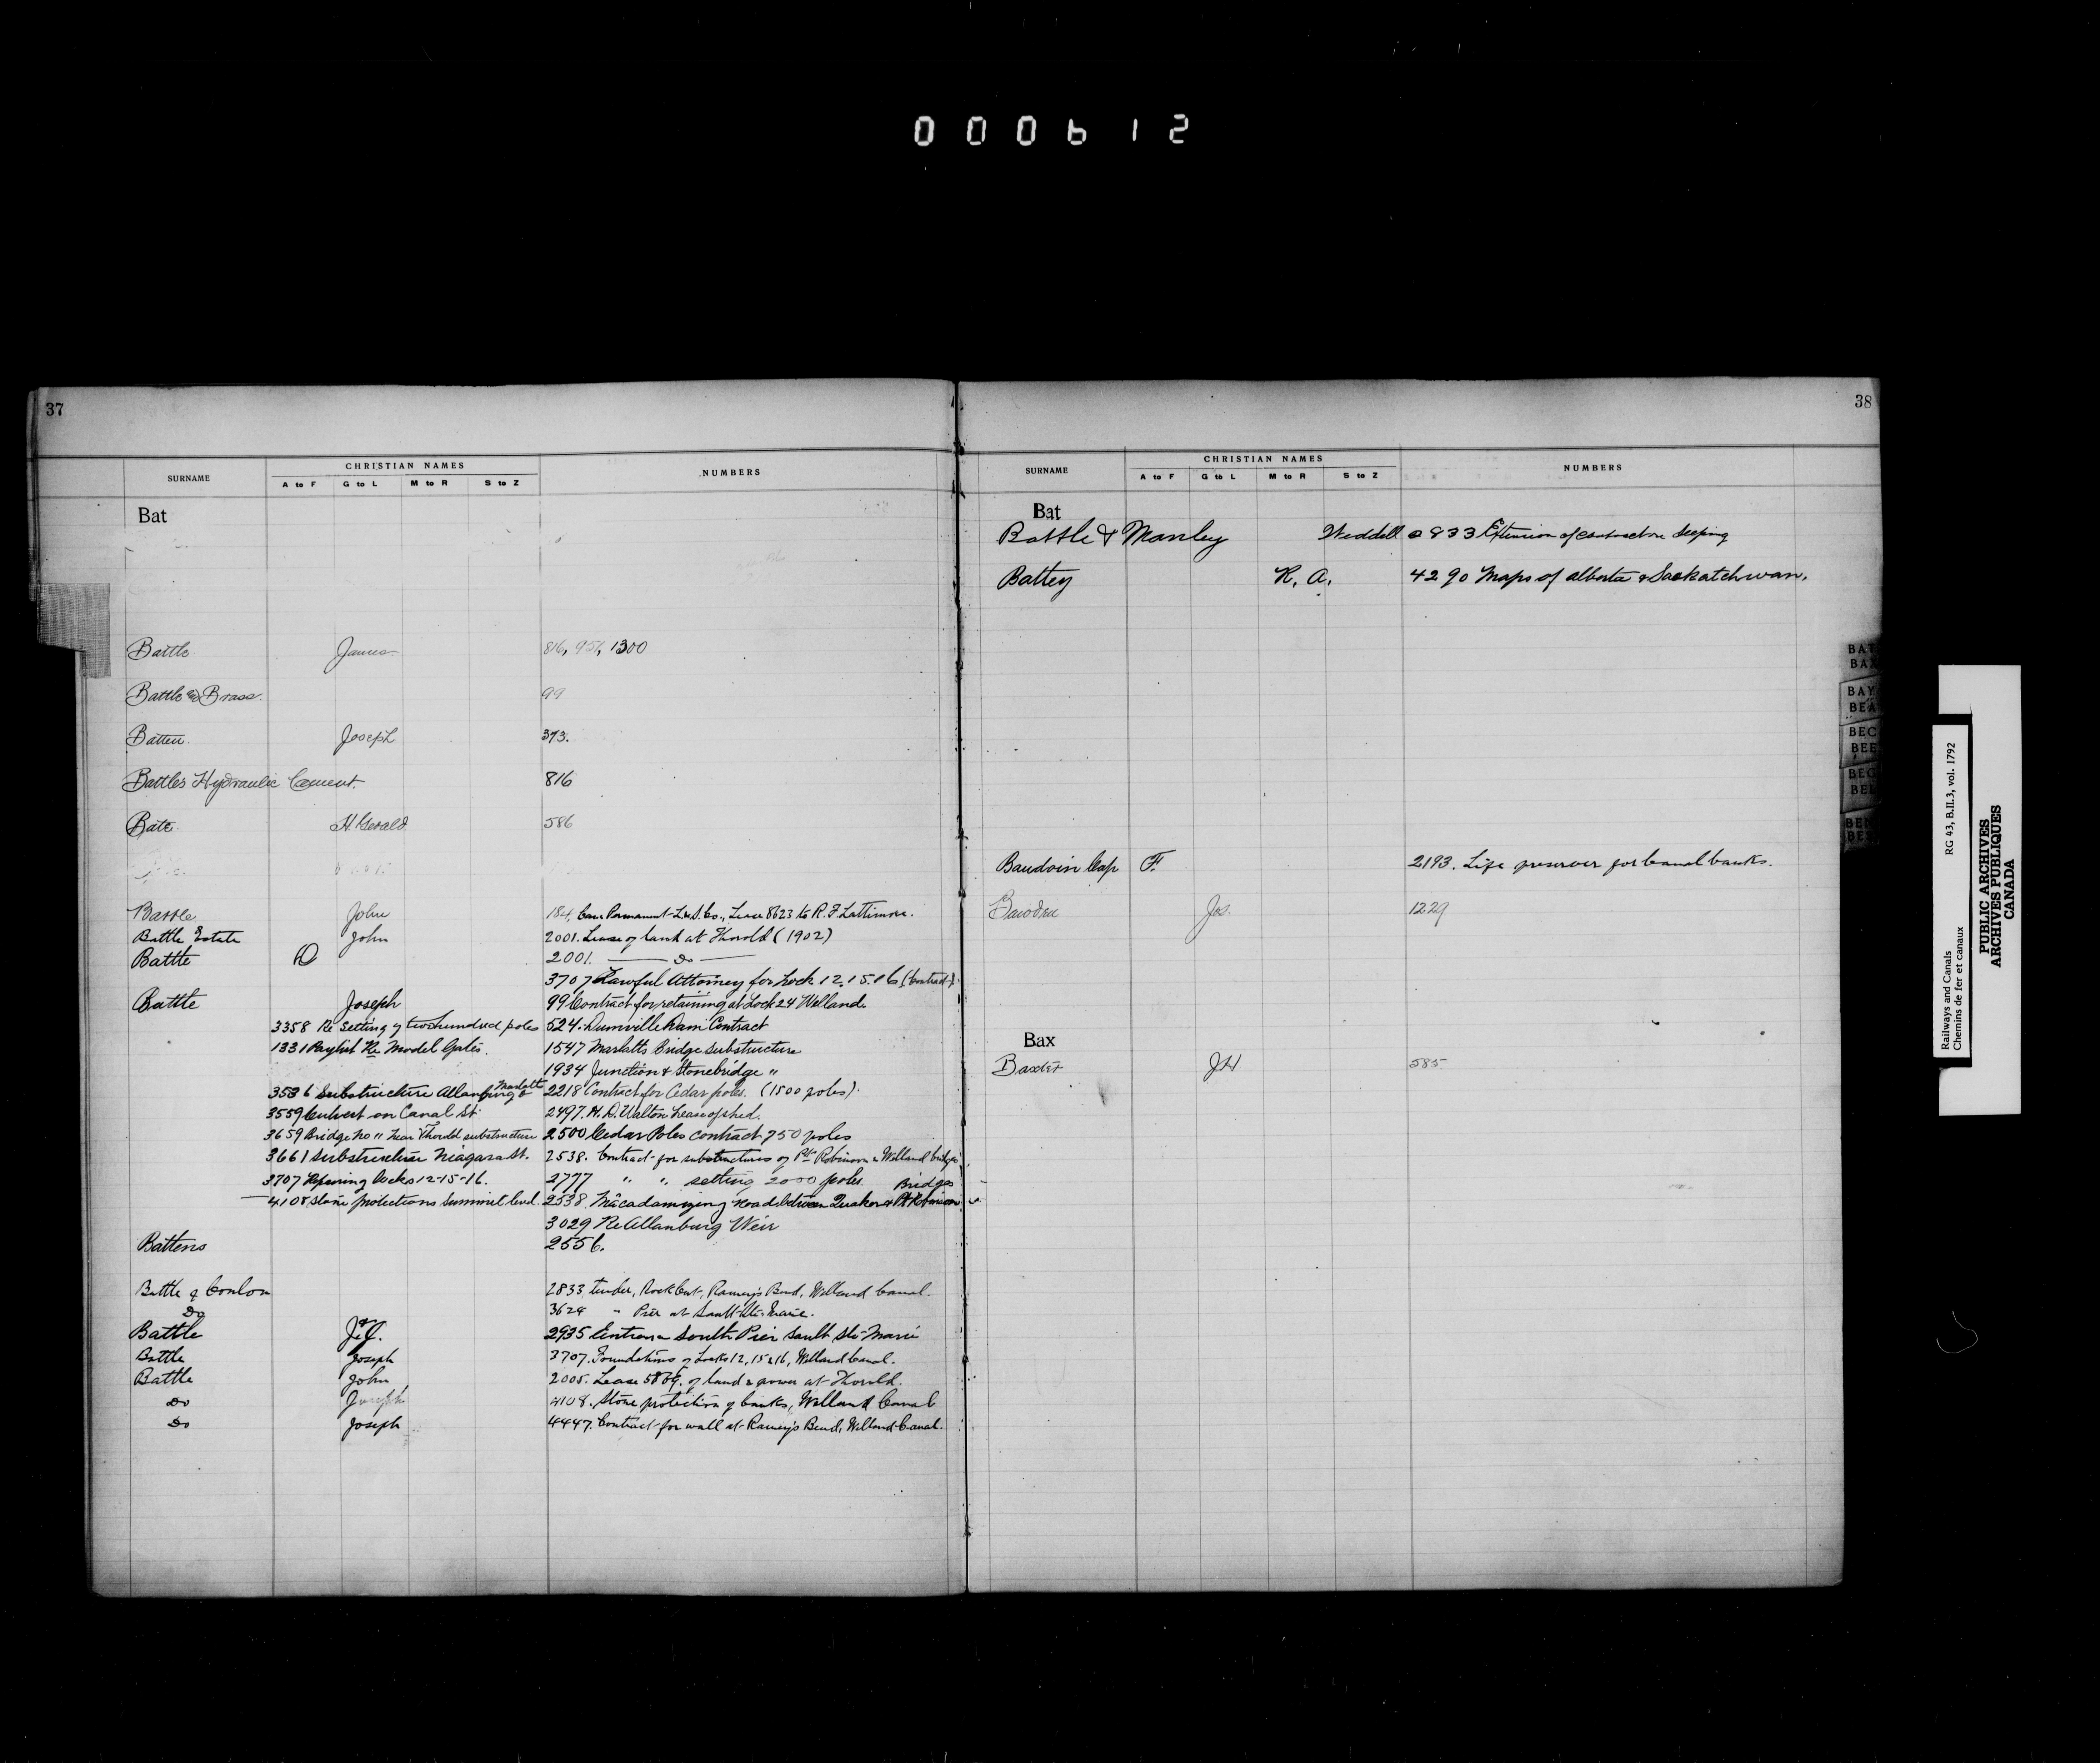 000612
37
SURNAME CHRISTIAN NAMES NUMBERS
A to F G to L M to R S to Z
Bat
Battle James 816, 951, 1300
Battle and Brass. 99
Batten. Joseph 373.
Battle's Hydraulic Cement. 816
Bate H. Gerald 586
Battle John 184, Can. Permanent L & S. Co., Lease 8623 to R. F. Lattimore.
Battle Estate John 2001. Lease of land at Thorold (1902)
Battle D 2001. — do —
3707 Lawful Attorney for Lock 12.15.16 (Contract)
Battle Joseph 99 Contract for retaining at Lock 24 Welland
3358 Re Setting of two hundred poles 524. Dunnville Dam Contract
1331 Paylist Re Model Gates. 1547 Marlatts Bridge substructure
1934 Junction & Stonebridge "
3536 Substructure Allanburg & Marlatts 2218 Contract for Cedar poles. (1500 poles).
3559 Culvert on Canal St. 2497. H. D. Walton Lease of shed.
3659 Bridge No " near Thorold substructure 2500 Cedar Poles contract 750 poles
3661 Substructure Niagara St. 2538. Contract for substructures of Pt. Robinson & Welland bridges
3707 Repairing locks 12-15-16. 2777 " " setting 2000 poles. Bridges
4108 Stone protections Summit level. 2538. Macadamizing road between Quaker & Pt Robinson
3029 Re Allanburg Weir
Battens 2556.
Battle & Conlon 2833 tender, Rock Cut, Ramey's Bend, Welland Canal.
Do 3624 " Pier at Sault Ste. Marie.
Battle J. & J. 2935 Entrance South Pier Sault Ste-Marie
Battle Joseph 3707. Foundations of Locks 12, 15 & 16, Welland Canal.
Battle John 2005. Lease 5869. of land & power at Thorold.
Do Joseph 4108. Stone protection of banks, Welland Canal
Do Joseph 4447. Contract for wall at Ramey's Bend, Welland Canal.
38
SURNAME CHRISTIAN NAMES NUMBERS
A to F G to L M to R S to Z
Bat
Battle & Manley Weddell 2833 Extension of
Battey R. A. 4290 Maps of Alberta & Saskatchewan.
Baudoin Cap F. 2193. Life preserver for Canal banks.
Bawden Jos. 1229
Bax
Baxter JH 585
BAT
BAX
BAY
BEA
BEC
BEE
BEG
BEL
BEN
Railways and Canals RG 43, B.II.3, vol. 1792
Chemins de fer et canaux
PUBLIC ARCHIVES
ARCHIVES PUBLIQUES
CANADA